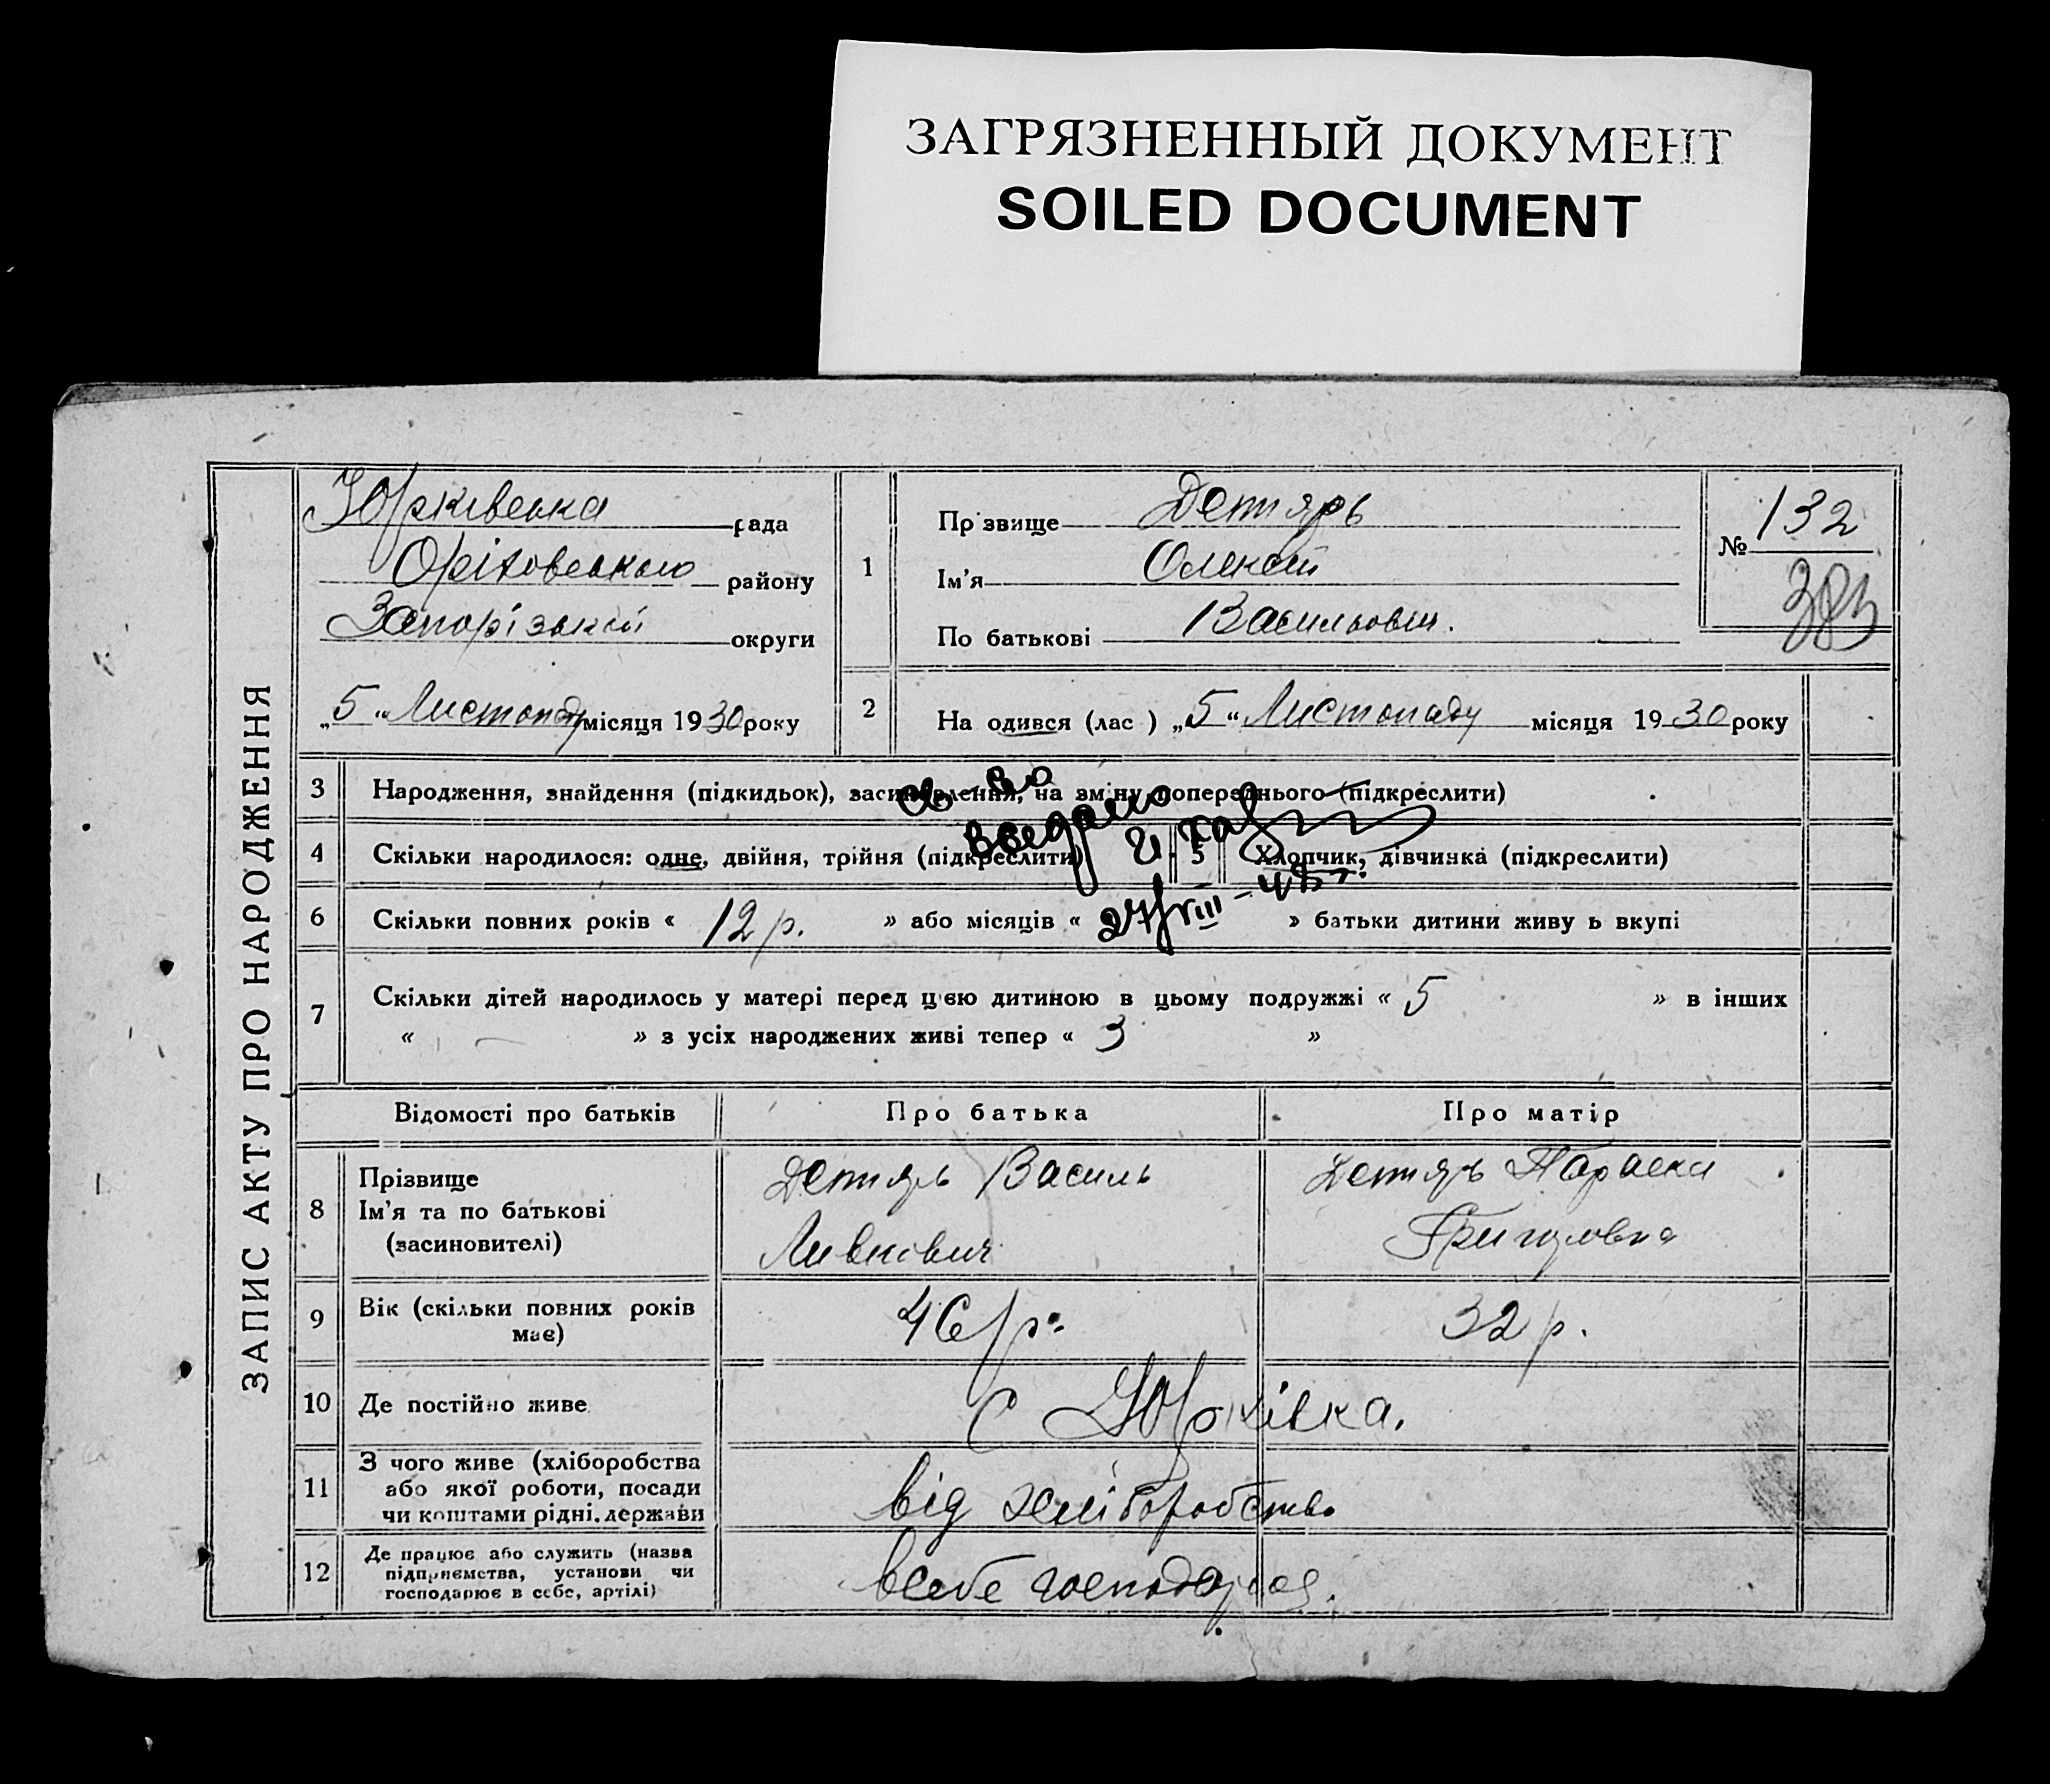 ЗАГРЯЗНЕННЫЙ ДОКУМЕНТ
SOILED DOCUMENT
ЗАПИС АКТУ ПРО НАРОДЖЕННЯ
Юрківська рада
Оріховського району
Запорізької округи
„5“ Листопаду місяця 1930 року
1
Пр звище Детярь
Ім'я Олексій
По батькові Васильович.
№ 132
2
На одився (лас ) „5“ Листопаду місяця 1930 року
3 Народження, знайдення (підкидьок), засиновлення, на зміну попереднього (підкреслити)
4 Скільки народилося: одне, двійня, трійня (підкреслити) 5 Хлопчик, дівчинка (підкреслити)
27/VIII-45 г.
6 Скільки повних років « 12 р. » або місяців « » батьки дитини живу ь вкупі
7 Скільки дітей народилось у матері перед цією дитиною в цьому подружжі « 5 » в інших
« — » з усіх народжених живі тепер « 3 »
Відомості про батьків Про батька Про матір
8 Прізвище
Ім'я та по батькові
(засиновителі)
Детярь Василь
Ливкович
Детярь Параска
Григоровна
9 Вік (скільки повних років
має)
46 р. 32 р.
10 Де постійно живе с Юрківка.
11 З чого живе (хліборобства
або якої роботи, посади
чи коштами рідні, держави
від хліборобства
12 Де працює або служить (назва
підприємства, установи чи
господарює в себе, артілі)
всебе господарює.